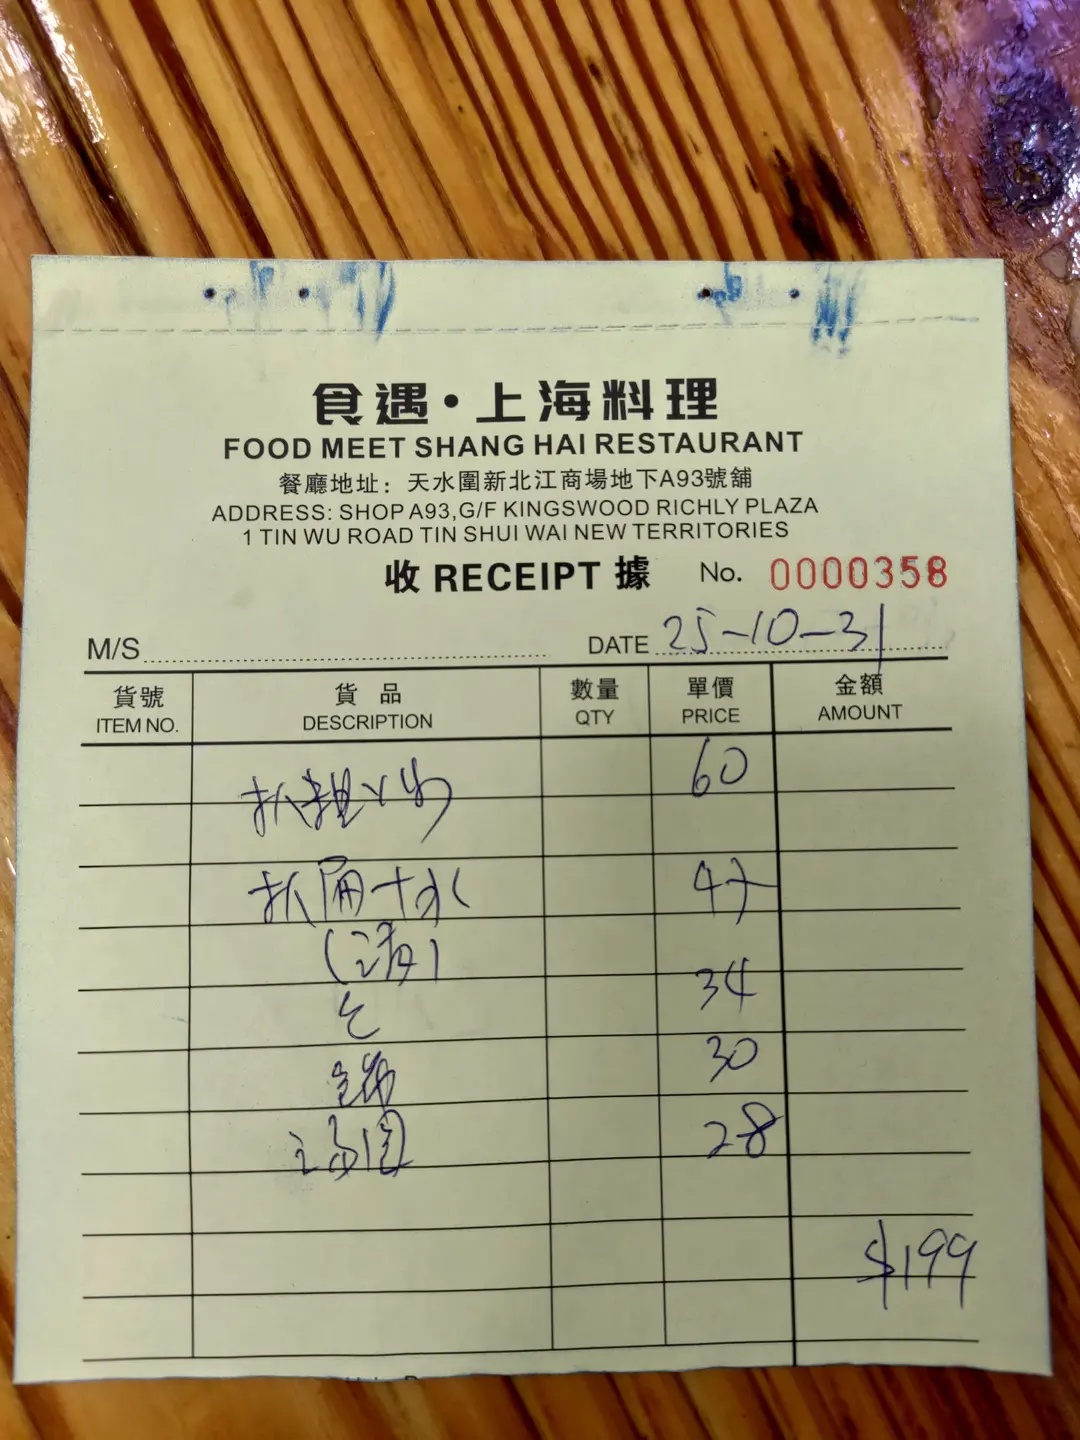 食遇·上海料理
FOOD MEET SHANG HAI RESTAURANT
餐廳地址：天水圍新北江商場地下A93號舖
ADDRESS: SHOP A93,G/F KINGSWOOD RICHLY PLAZA
1 TIN WU ROAD TIN SHUI WAI NEW TERRITORIES
收 RECEIPT 據 No. 0000358
M/S DATE 25-10-31
貨號 貨品 數量 單價 金額
ITEM NO. DESCRIPTION QTY PRICE AMOUNT
60
47
34
30
28
$199